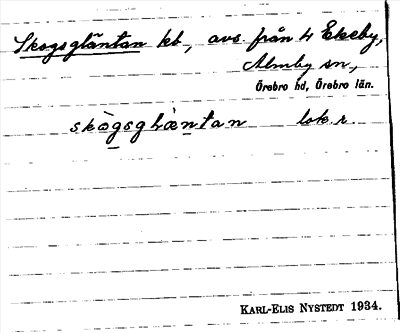 Skogsgläntan kb, avs. från 4 Ekeby,
Almby sn,
Örebro hd, Örebro län.
skògsglæ̀ntan lok. r.
KARL-ELIS NYSTEDT 1934.